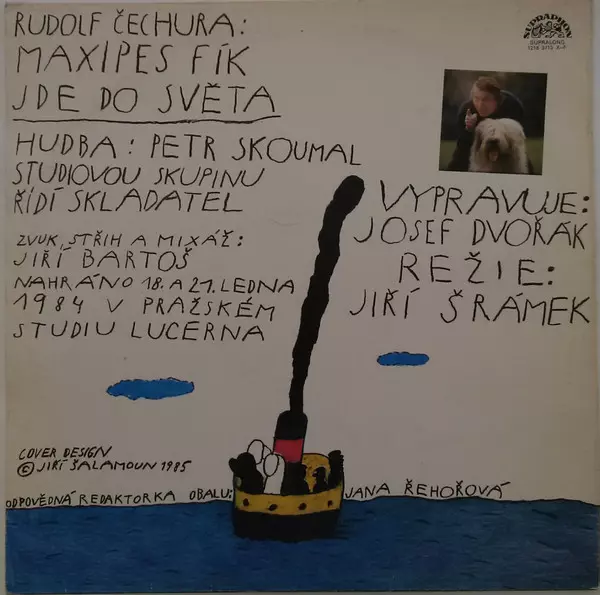 RUDOLF ČECHURA:
MAXIPES FÍK
JDE DO SVĚTA
HUDBA: PETR SKOUMAL
STUDIOVOU SKUPINU
ŘÍDÍ SKLADATEL
ZVUK, STŘIH A MIXÁŽ:
JIŘÍ BARTOŠ
NAHRÁNO 18. A 21. LEDNA
1984 V PRAŽSKÉM
STUDIU LUCERNA
SUPRAPHON
SUPRALONG
VYPRAVUJE:
JOSEF DVOŘÁK
REŽIE:
JIŘÍ ŠRÁMEK
COVER DESIGN
© JIŘÍ ŠALAMOUN 1985
ODPOVĚDNÁ REDAKTORKA OBALU: JANA ŘEHOŘOVÁ